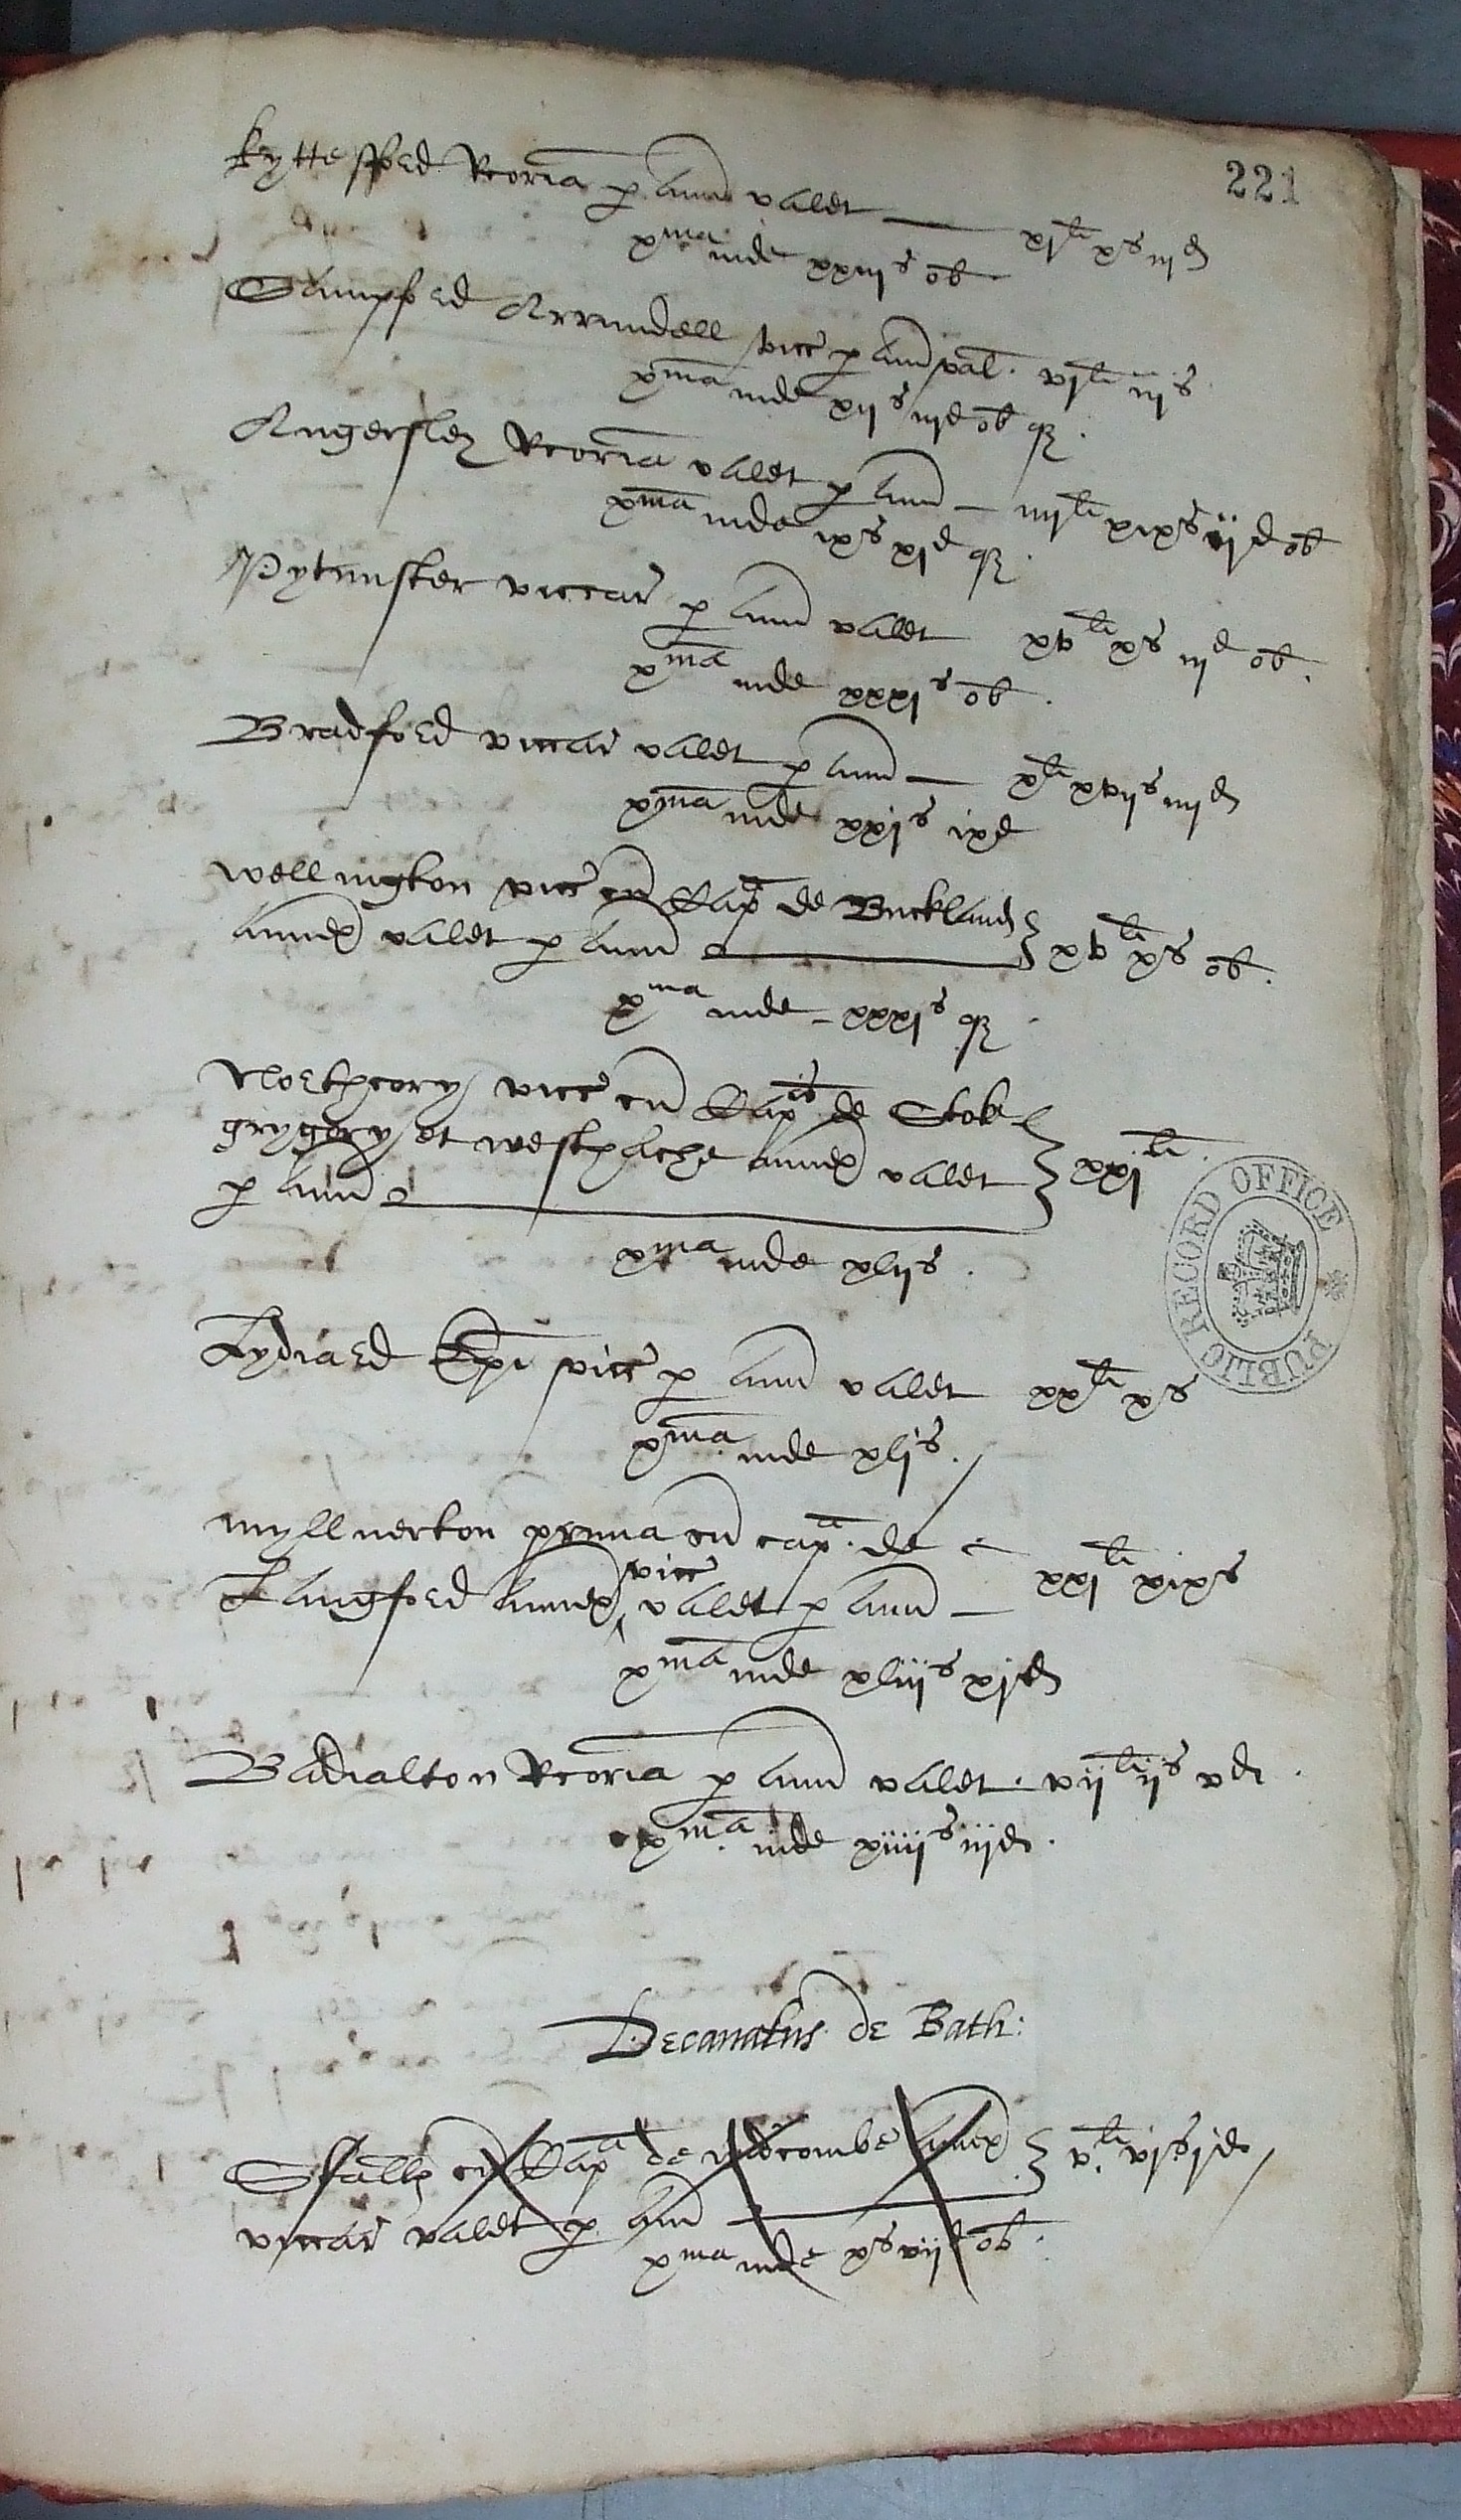 221
Kyttesford Rcoria p Ann valet — xjli xs iijd
xma inde xxiijs ob
Sampford Arrundell vicc p Ann val. vjli iijs
xma inde xijs iijd ob q.
Angersley Rcoria valet p Ann — iiijli xixs ijd ob
xma inde ixs xjd q.
Pytmster viccar p Ann valet xvli xs iijd ob.
xma inde xxxjs ob.
Bradford viccar valet p Ann — xli xvijs iiijd
xma inde xxjs ixd
Wellington vicc cu Cap de Buckland
Annex valet p Ann xvli xs ob.
xma inde - xxxjs q.
Northcory vicc cu Capis de Stok
grygory et westhache Annex valet xxjli.
p Ann
xma inde xlijs.
Lydiard Epi vicc p Ann valet xxli xs
xma inde xljs.
Myllverton prima cu capa. de
Langford Annex vicc valet p Ann — xxjli xixs
xma inde xliijs xjd
Badialton Rcoria p Ann valet. vijli ijs vd.
xma inde xiiijs iijd.
Decanatus de Bath:
Stallx cu Capa de wydcombe Annex
viccar valet p Ann vli vjs jd
xma inde xs vijd ob.
PUBLIC RECORD OFFICE